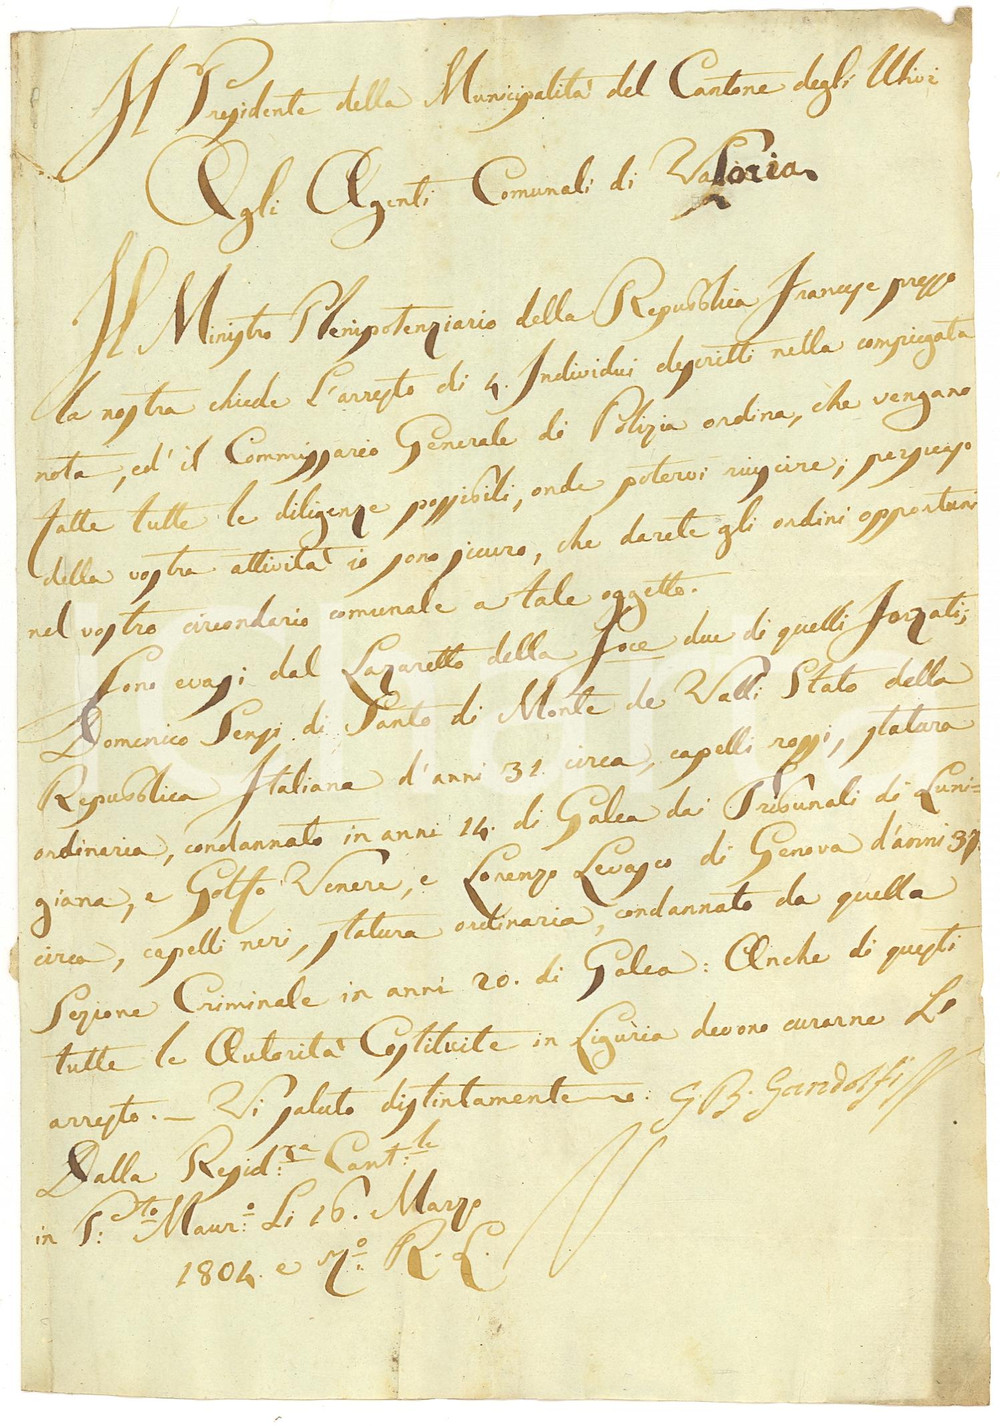 Il Presidente della Municipalità del Cantone degli Ulivi
Agli Agenti Comunali di Valloria
Il Ministro Plenipotenziario della Repubblica Francese presso
la nostra chiede l'arresto di 4. Individui descritti nella compiegata
nota, ed' il Commissario Generale di Polizia ordina, che vengano
fatte tutte le diligenze possibili, onde potervi riuscire; persuaso
della vostra attività io sono sicuro, che darete gli ordini opportuni
nel vostro circondario comunale a tale oggetto.
Sono evasi dal Lazaretto della Foce due di quelli Forzati;
Domenico Sensi di Santo di Monte de Valli Stato della
Repubblica Italiana d'anni 31. circa, capelli rossi, statura
ordinaria, condannato in anni 14. di Galea dai Tribunali di Luni=
giana, e Golfo Venere, e Lorenzo Levasco di Genova d'anni
circa, capelli neri, statura ordinaria, condannato da quella
Sezione Criminale in anni 20. di Galea: Anche di questi
tutte le Autorità Costituite in Liguria devono curarne Lo
arresto. — Vi saluto distintamente. G B. Gandolfi
Dalla Resid:za Cant:le
in P:to Maur:o Li 16. Marzo
1804. e 7:o R. L.